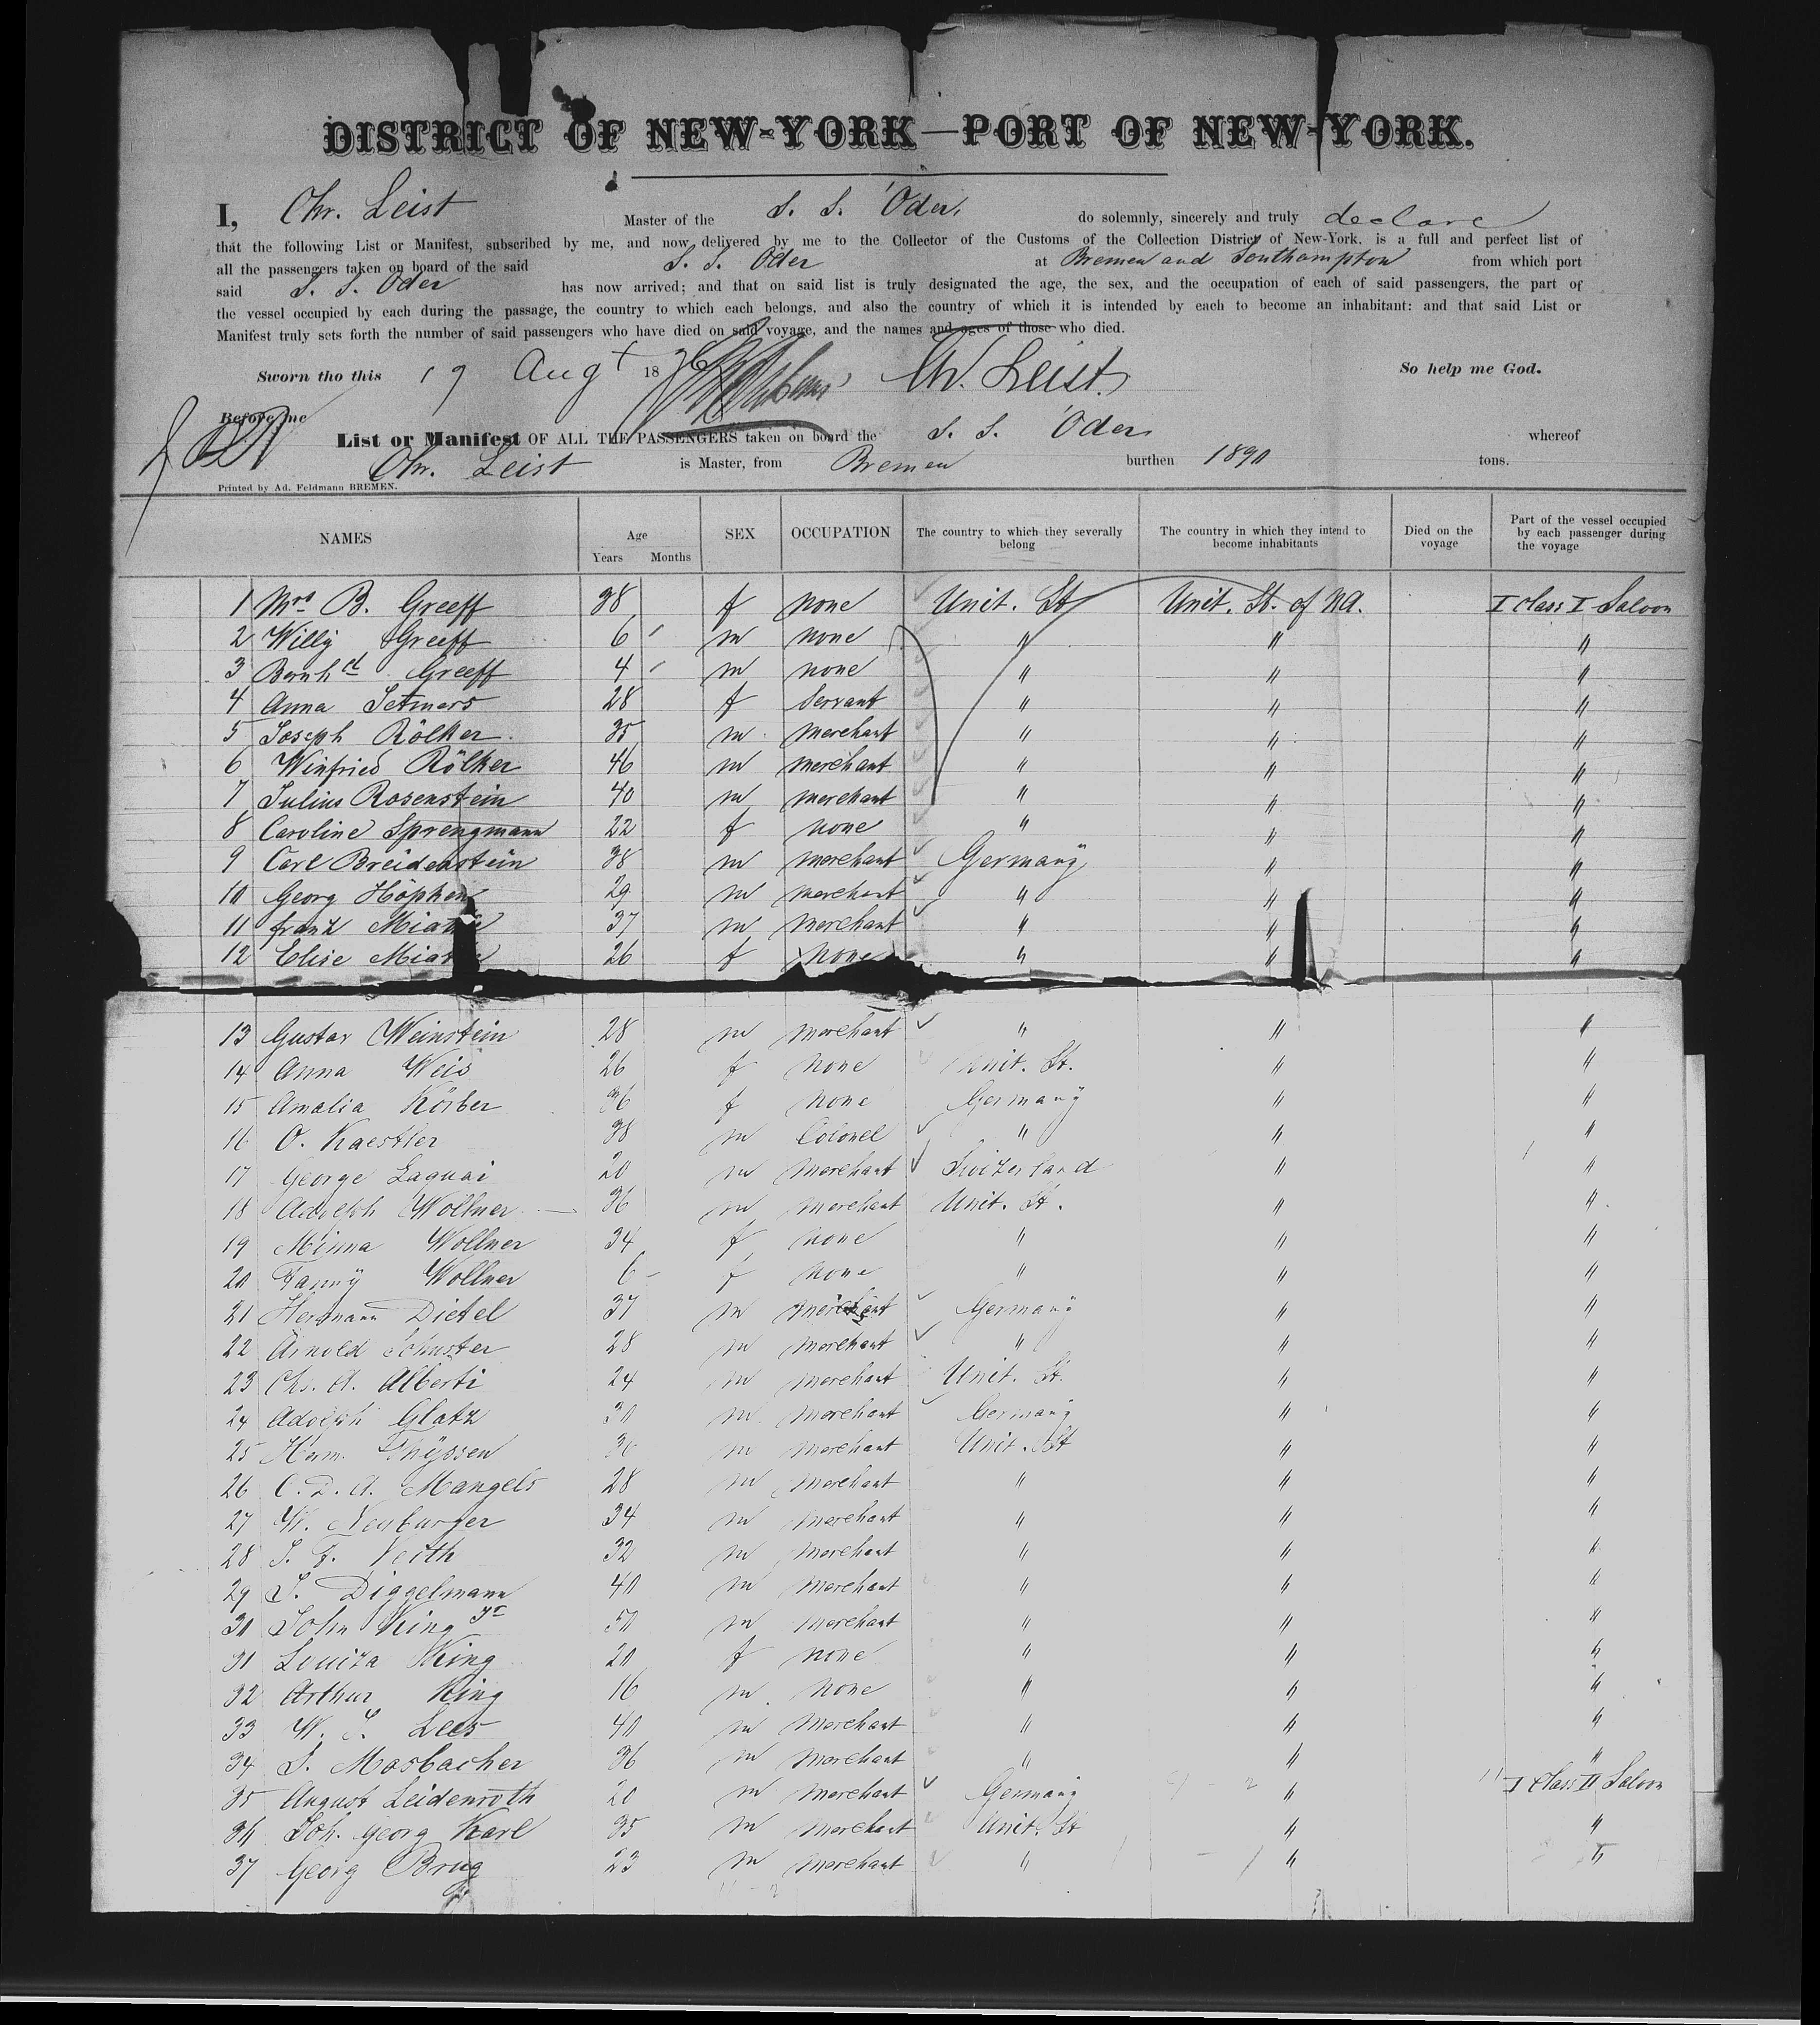 DISTRICT OF NEW-YORK—PORT OF NEW-YORK.
I, Chr. Leist Master of the S. S. Oder, do solemnly, sincerely and truly declare
that the following List or Manifest, subscribed by me, and now delivered by me to the Collector of the Customs of the Collection District of New-York, is a full and perfect list of
all the passengers taken on board of the said S. S. Oder at Bremen and Southampton from which port
said S. S. Oder has now arrived; and that on said list is truly designated the age, the sex, and the occupation of each of said passengers, the part of
the vessel occupied by each during the passage, the country to which each belongs, and also the country of which it is intended by each to become an inhabitant: and that said List or
Manifest truly sets forth the number of said passengers who have died on said voyage, and the names and ages of those who died.
Sworn tho this 19 Augt 1876 Chr. Leist. So help me God.
Before me
List or Manifest OF ALL THE PASSENGERS taken on board the S. S. Oder whereof
Chr. Leist is Master, from Bremen burthen 1890 tons.
Printed by Ad. Feldmann BREMEN.
NAMES Age Years Months SEX OCCUPATION The country to which they severally belong The country in which they intend to become inhabitants Died on the voyage Part of the vessel occupied by each passenger during the voyage
1 Mrs B. Greeff 38 f none Unit. St Unit. St. of NA. I class I Saloon
2 Willÿ Greeff 6 m none " " "
3 Bernhd Greeff 4 m none " " "
4 Anna Tetmers 28 f Servant " " "
5 Joseph Rölker 35 m merchant " " "
6 Winfried Rölker 46 m merchant " " "
7 Julius Rosenstein 40 m merchant " " "
8 Caroline Sprengmann 22 f none " " "
9 Carl Breidenstein 38 m merchant Germanÿ " "
10 Georg Höpken 29 m merchant " " "
11 Franz 37 m merchant " " "
12 Elise 26 f none " " "
13 Gustav Weinstein 28 m merchant " " "
14 Anna Weis 26 f none Unit. St. " "
15 Amalia Körber 36 f none Germanÿ " "
16 O. Kaestler 38 m Colonel " " "
17 George Laquai 20 m merchant Switzerland " "
18 Adolph Wollner 36 m merchant Unit. St. " "
19 Minna Wollner 34 f none " " "
20 Fannÿ Wollner 6 f none " " "
21 Hermann Dietel 37 m merchant Germanÿ " "
22 Arnold Schuster 28 m merchant " " "
23 Chs. A. Alberti 24 m merchant Unit. St. " "
24 Adolph Glatz 30 m merchant Germany " "
25 Herm. Thÿssen 30 m merchant Unit. St " "
26 C. D. A. Mangels 28 m merchant " " "
27 W. Neuburger 34 m merchant " " "
28 J. F. Veith 32 m merchant " " "
29 J. Diggelmann 40 m merchant " " "
30 John King 50 m merchant " " "
31 Louiza King 20 f none " " "
32 Arthur King 16 m none " " "
33 W. J. Lees 40 m merchant " " "
34 S. Mosbacher 36 m merchant " " "
35 August Leidenroth 20 m merchant Germany " I class II Saloon
36 Joh. Georg Karl 35 m merchant Unit. St " "
37 Georg Brug 23 m merchant " " "